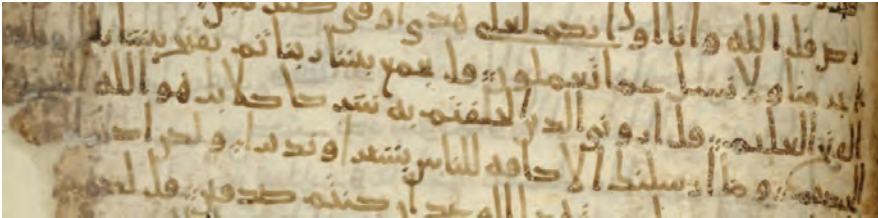 رض قل الله وانا او اياكم لعلى هدى او في ضلل مبين
اجرمنا ولا نسل عما تعملون قل يجمع بيننا ربنا ثم يفتح بيننا
العليم قل ارونى الذين الحقتم به شركا كلا بل هو الله العزيز
الحكيم وما ارسلنك الا كافه للناس بشيرا ونذيرا ولكن اكثر
الوعد ان كنتم صدقين قل لكم